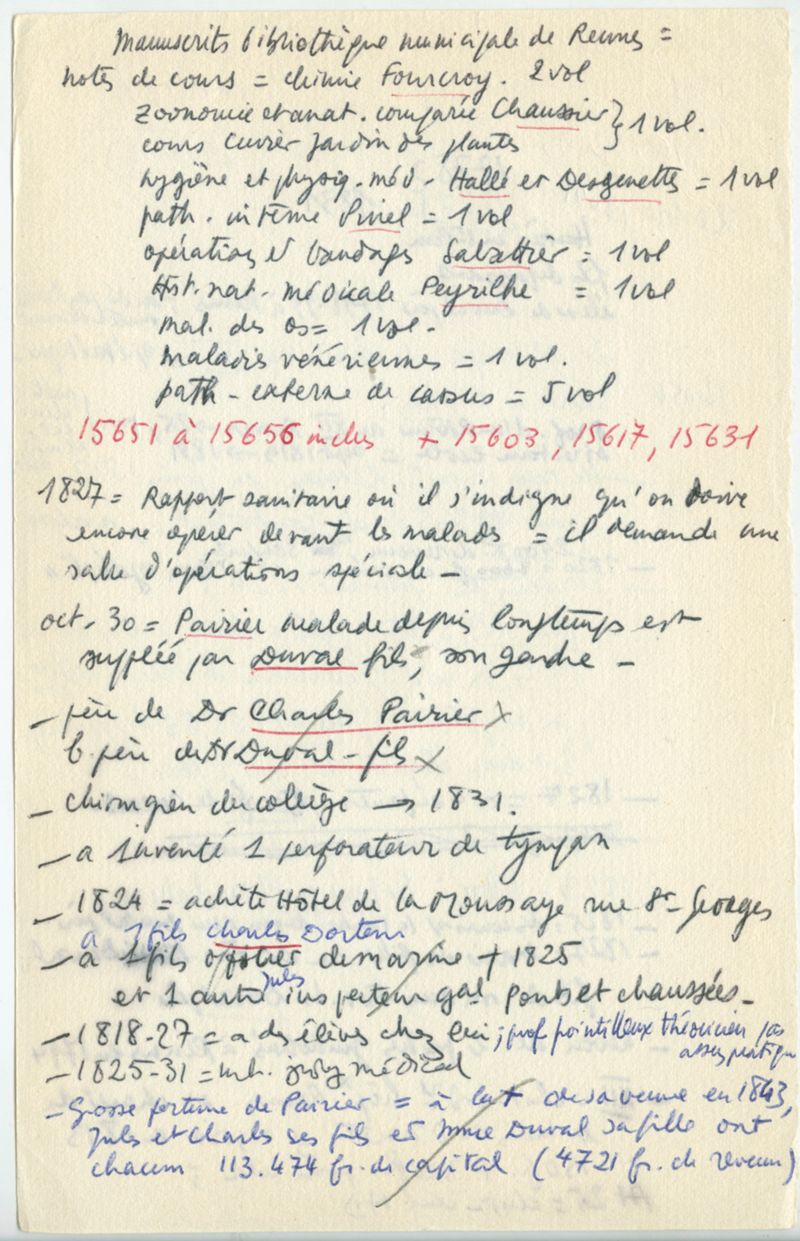 Manuscrits bibliothèque municipale de Rennes =
notes de cours = chimie Fourcroy. 2 vol
zoonomie et anat. comparée Chaussier } 1 vol.
cours Cuvier Jardin des plantes
hygiène et physiq. méd - Hallé et Desgenettes = 1 vol
path. interne Pinel = 1 vol
opérations et bandages Sabattier = 1 vol
Hist. nat. médicale Peyrilhe = 1 vol
mal. des os = 1 vol.
maladies vénériennes = 1 vol.
path - externe de Lassus = 5 vol
15651 à 15656 inclus + 15603, 15617, 15631
1827 = Rapport sanitaire où il s'indigne qu'on doive
encore opérer devant les malades = il demande une
salle d'opérations spéciale -
oct. 30 = Pairier malade depuis longtemps est
suppléé par Duval fils, son gendre -
- père de Dr Charles Pairier x
b. père de Dr Duval - fils x
- chirurgien du collège → 1831.
- a inventé 1 perforateur de tympan
- 1824 = achète Hôtel de la Moussaye rue St-Georges
a 1 fils Charles
- a 1 fils officier de marine + 1825
et 1 autre Jules inspecteur gal Ponts et chaussées -
- 1818-27 = a des élèves chez lui ; prof pointilleux théoricien pas
assez pratique
- 1825-31 = mb. jury médical
- Grosse fortune de Pairier = à la † de sa veuve en 1843,
Jules et Charles ses fils et Mme Duval sa fille ont
chacun 113.474 fr. de capital (4721 fr. de revenu)